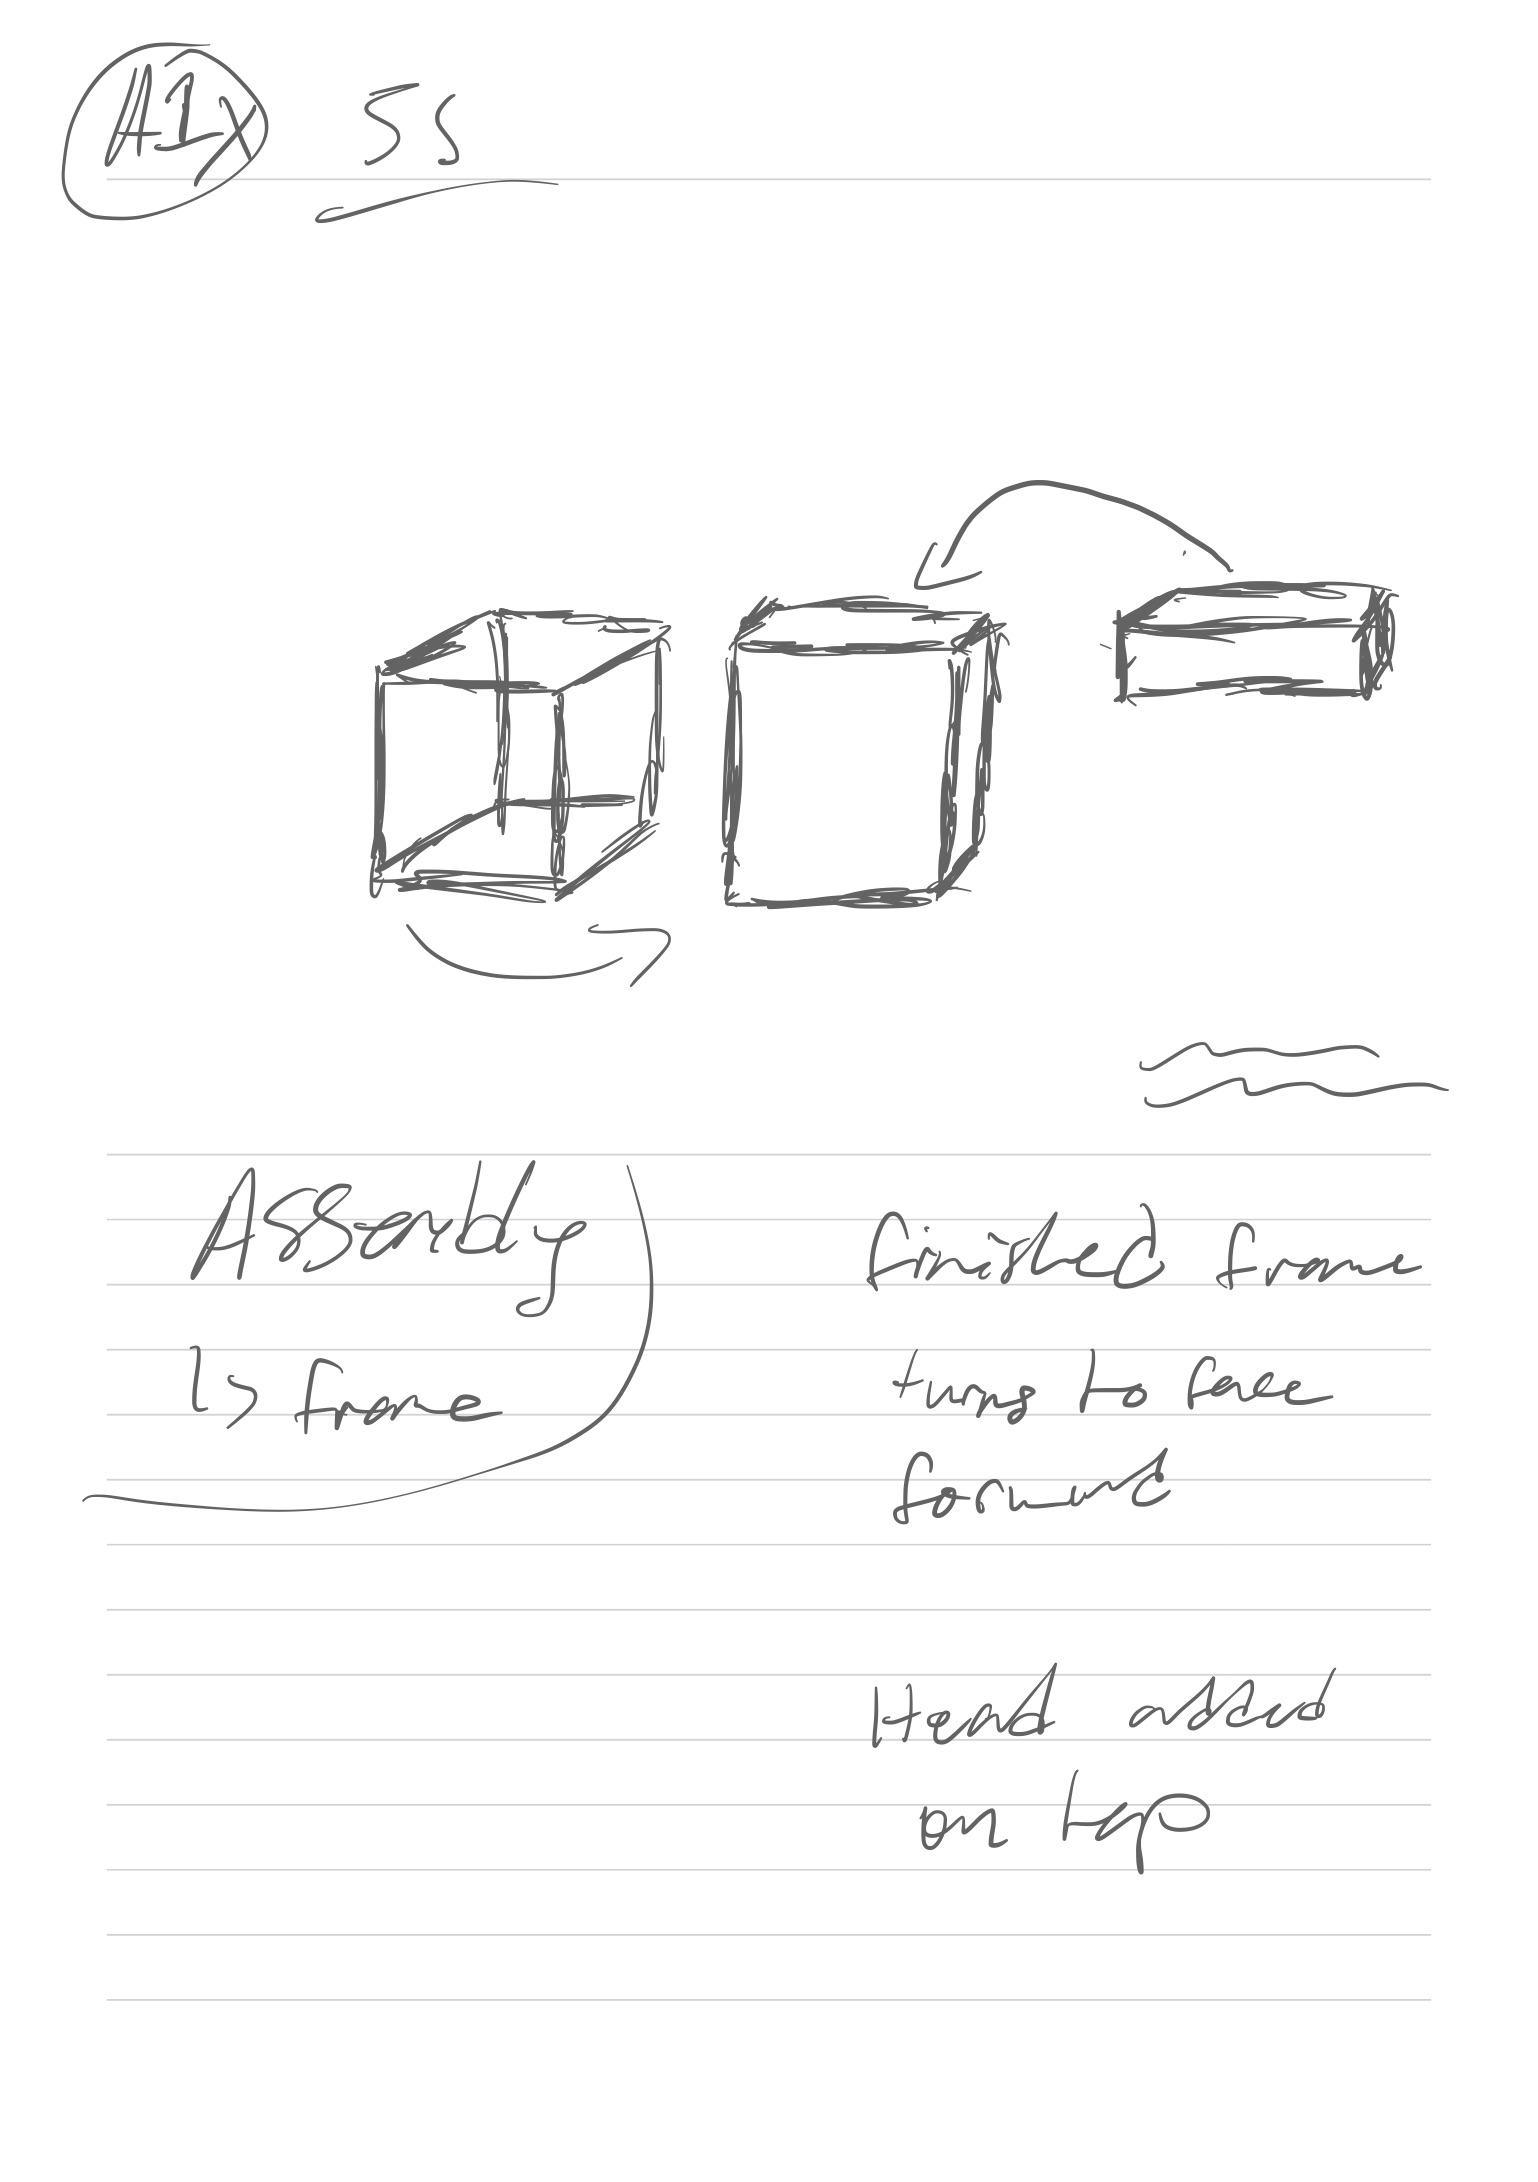 A1X 5s
Assembly
↳ frame
finished frame
turns to face
forward
Head added
on top